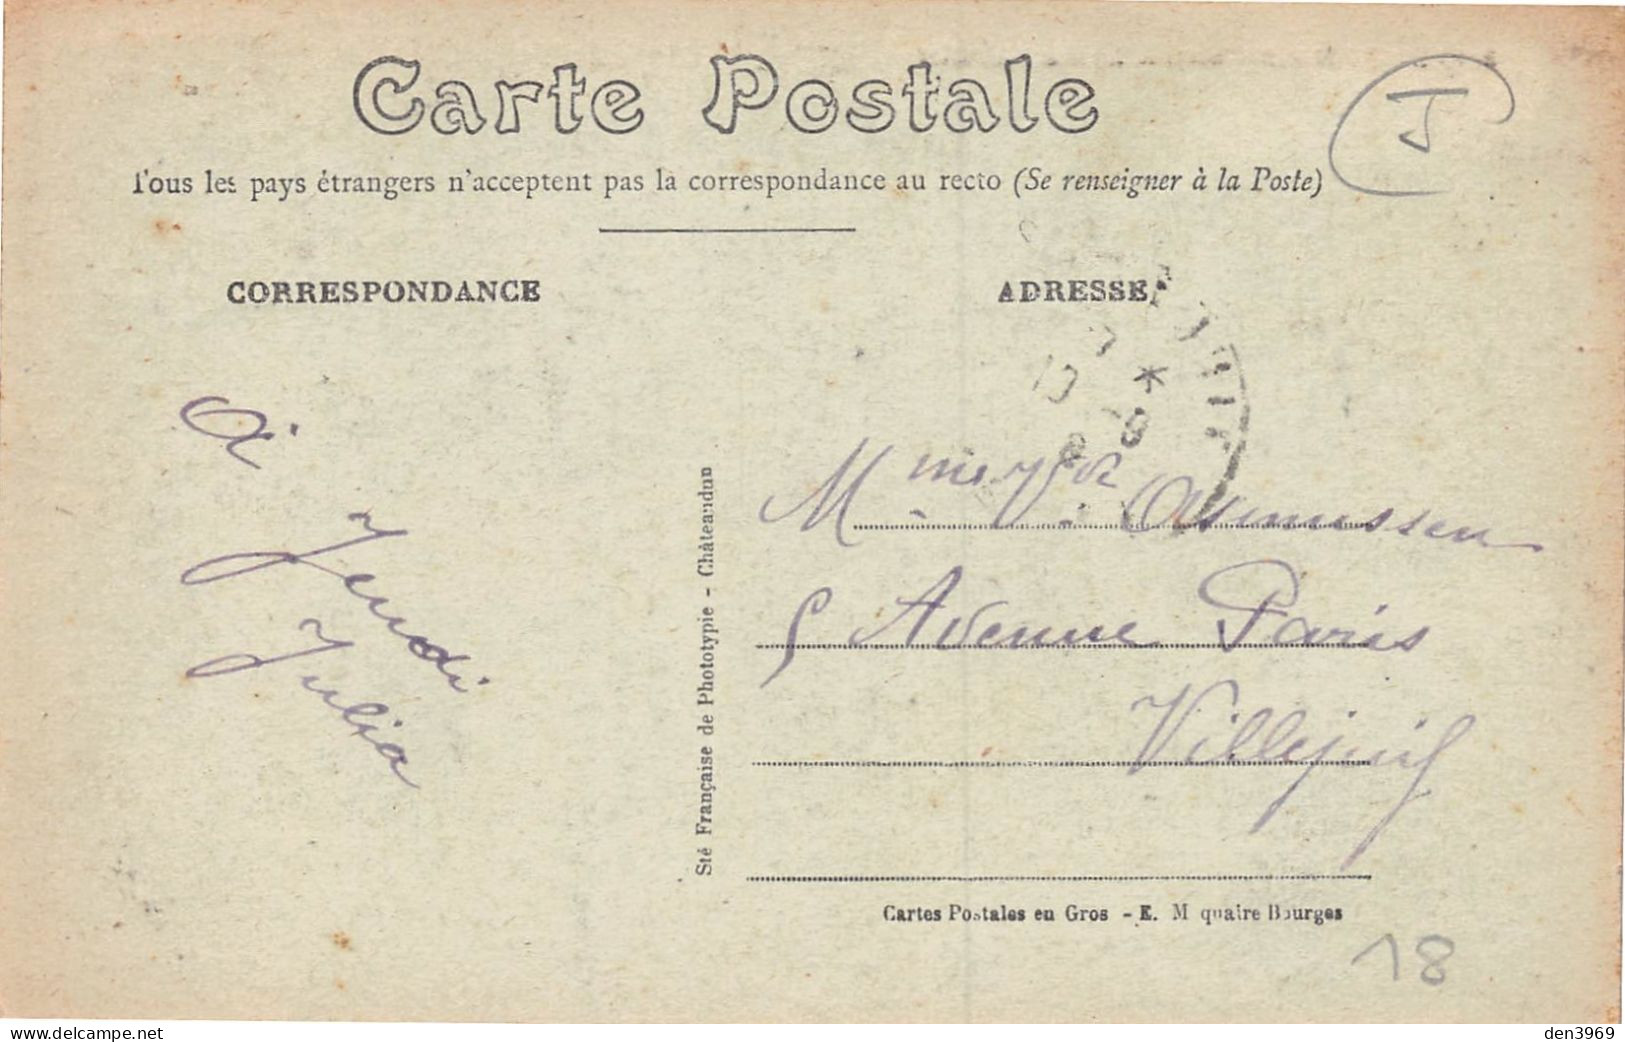 Carte Postale
J
Tous les pays étrangers n'acceptent pas la correspondance au recto (Se renseigner à la Poste)
CORRESPONDANCE
ADRESSE
A
Jeudi
Julia
Sté Française de Phototypie - Châteaudun
Mme Vve Asmussen
5 Avenue Paris
Villejuif
Cartes Postales en Gros - E. M quaire Bourges
18
delcampe.net
den3969